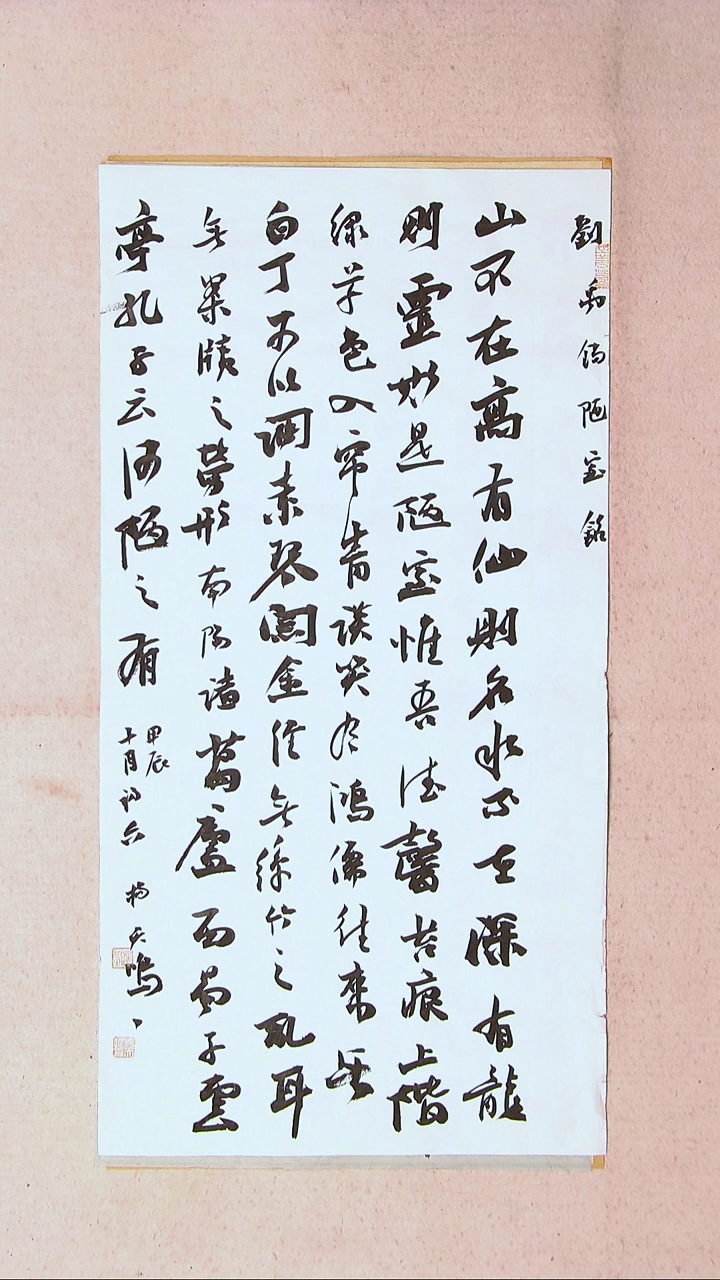 劉禹錫陋室銘
山不在高有仙則名水不在深有龍
則靈斯是陋室惟吾德馨苔痕上階
綠草色入帘青談笑有鴻儒往來無
白丁可以調素琴閱金經無絲竹之亂耳
無案牘之勞形南陽諸葛廬西蜀子雲
亭孔子云何陋之有
甲辰
十月初六